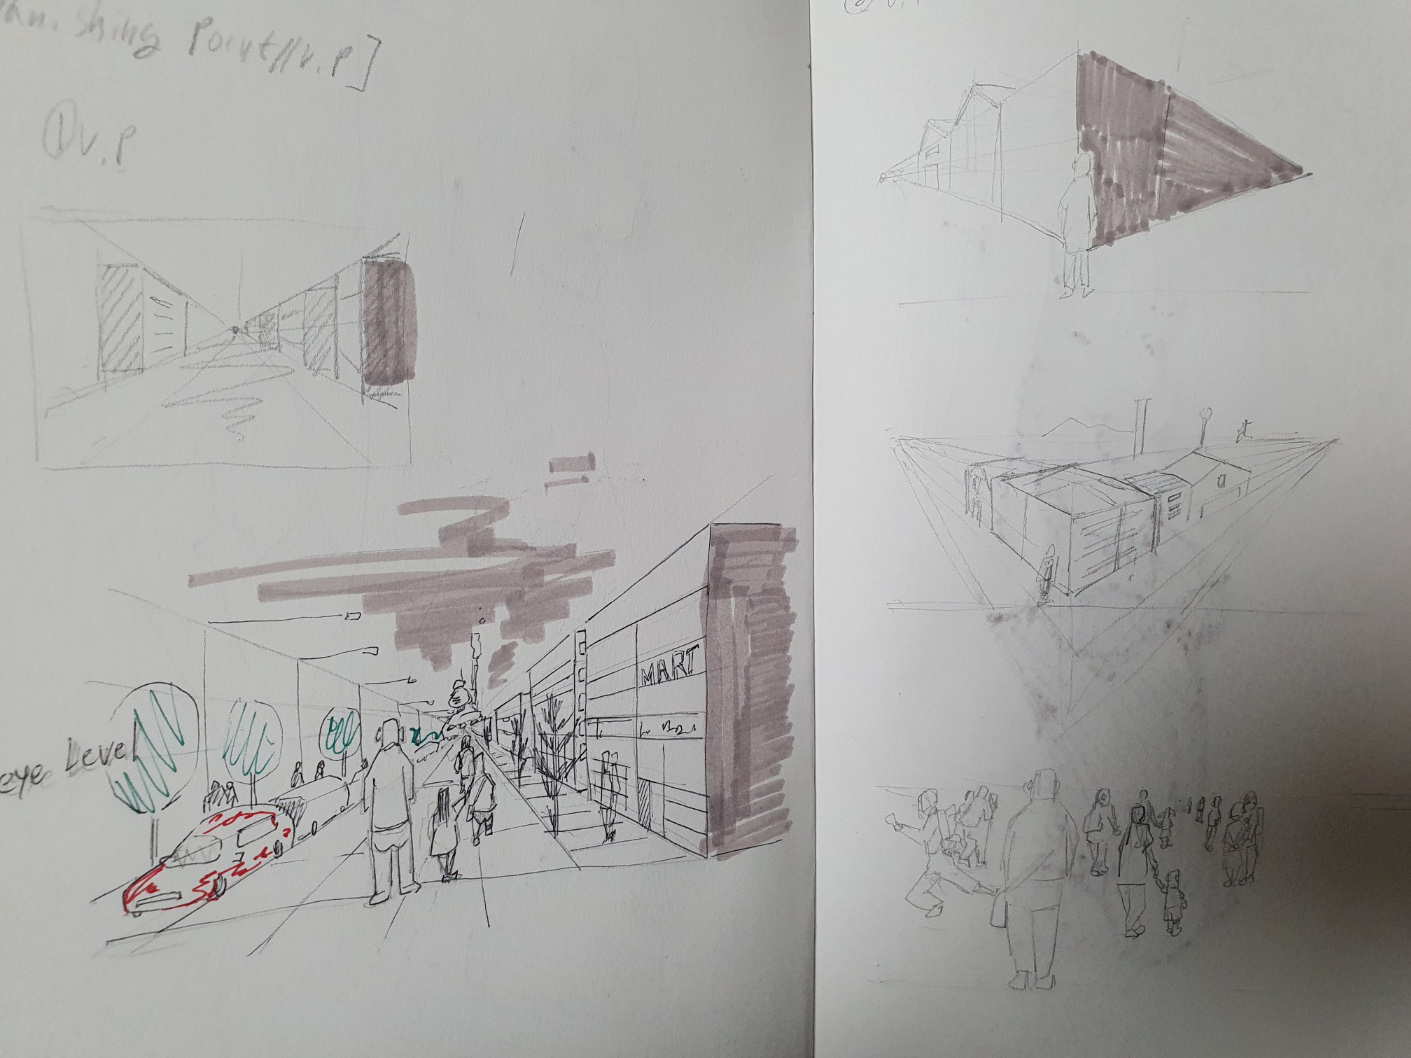 Vanishing Point//V.P]
①V.P
MART
eye Level